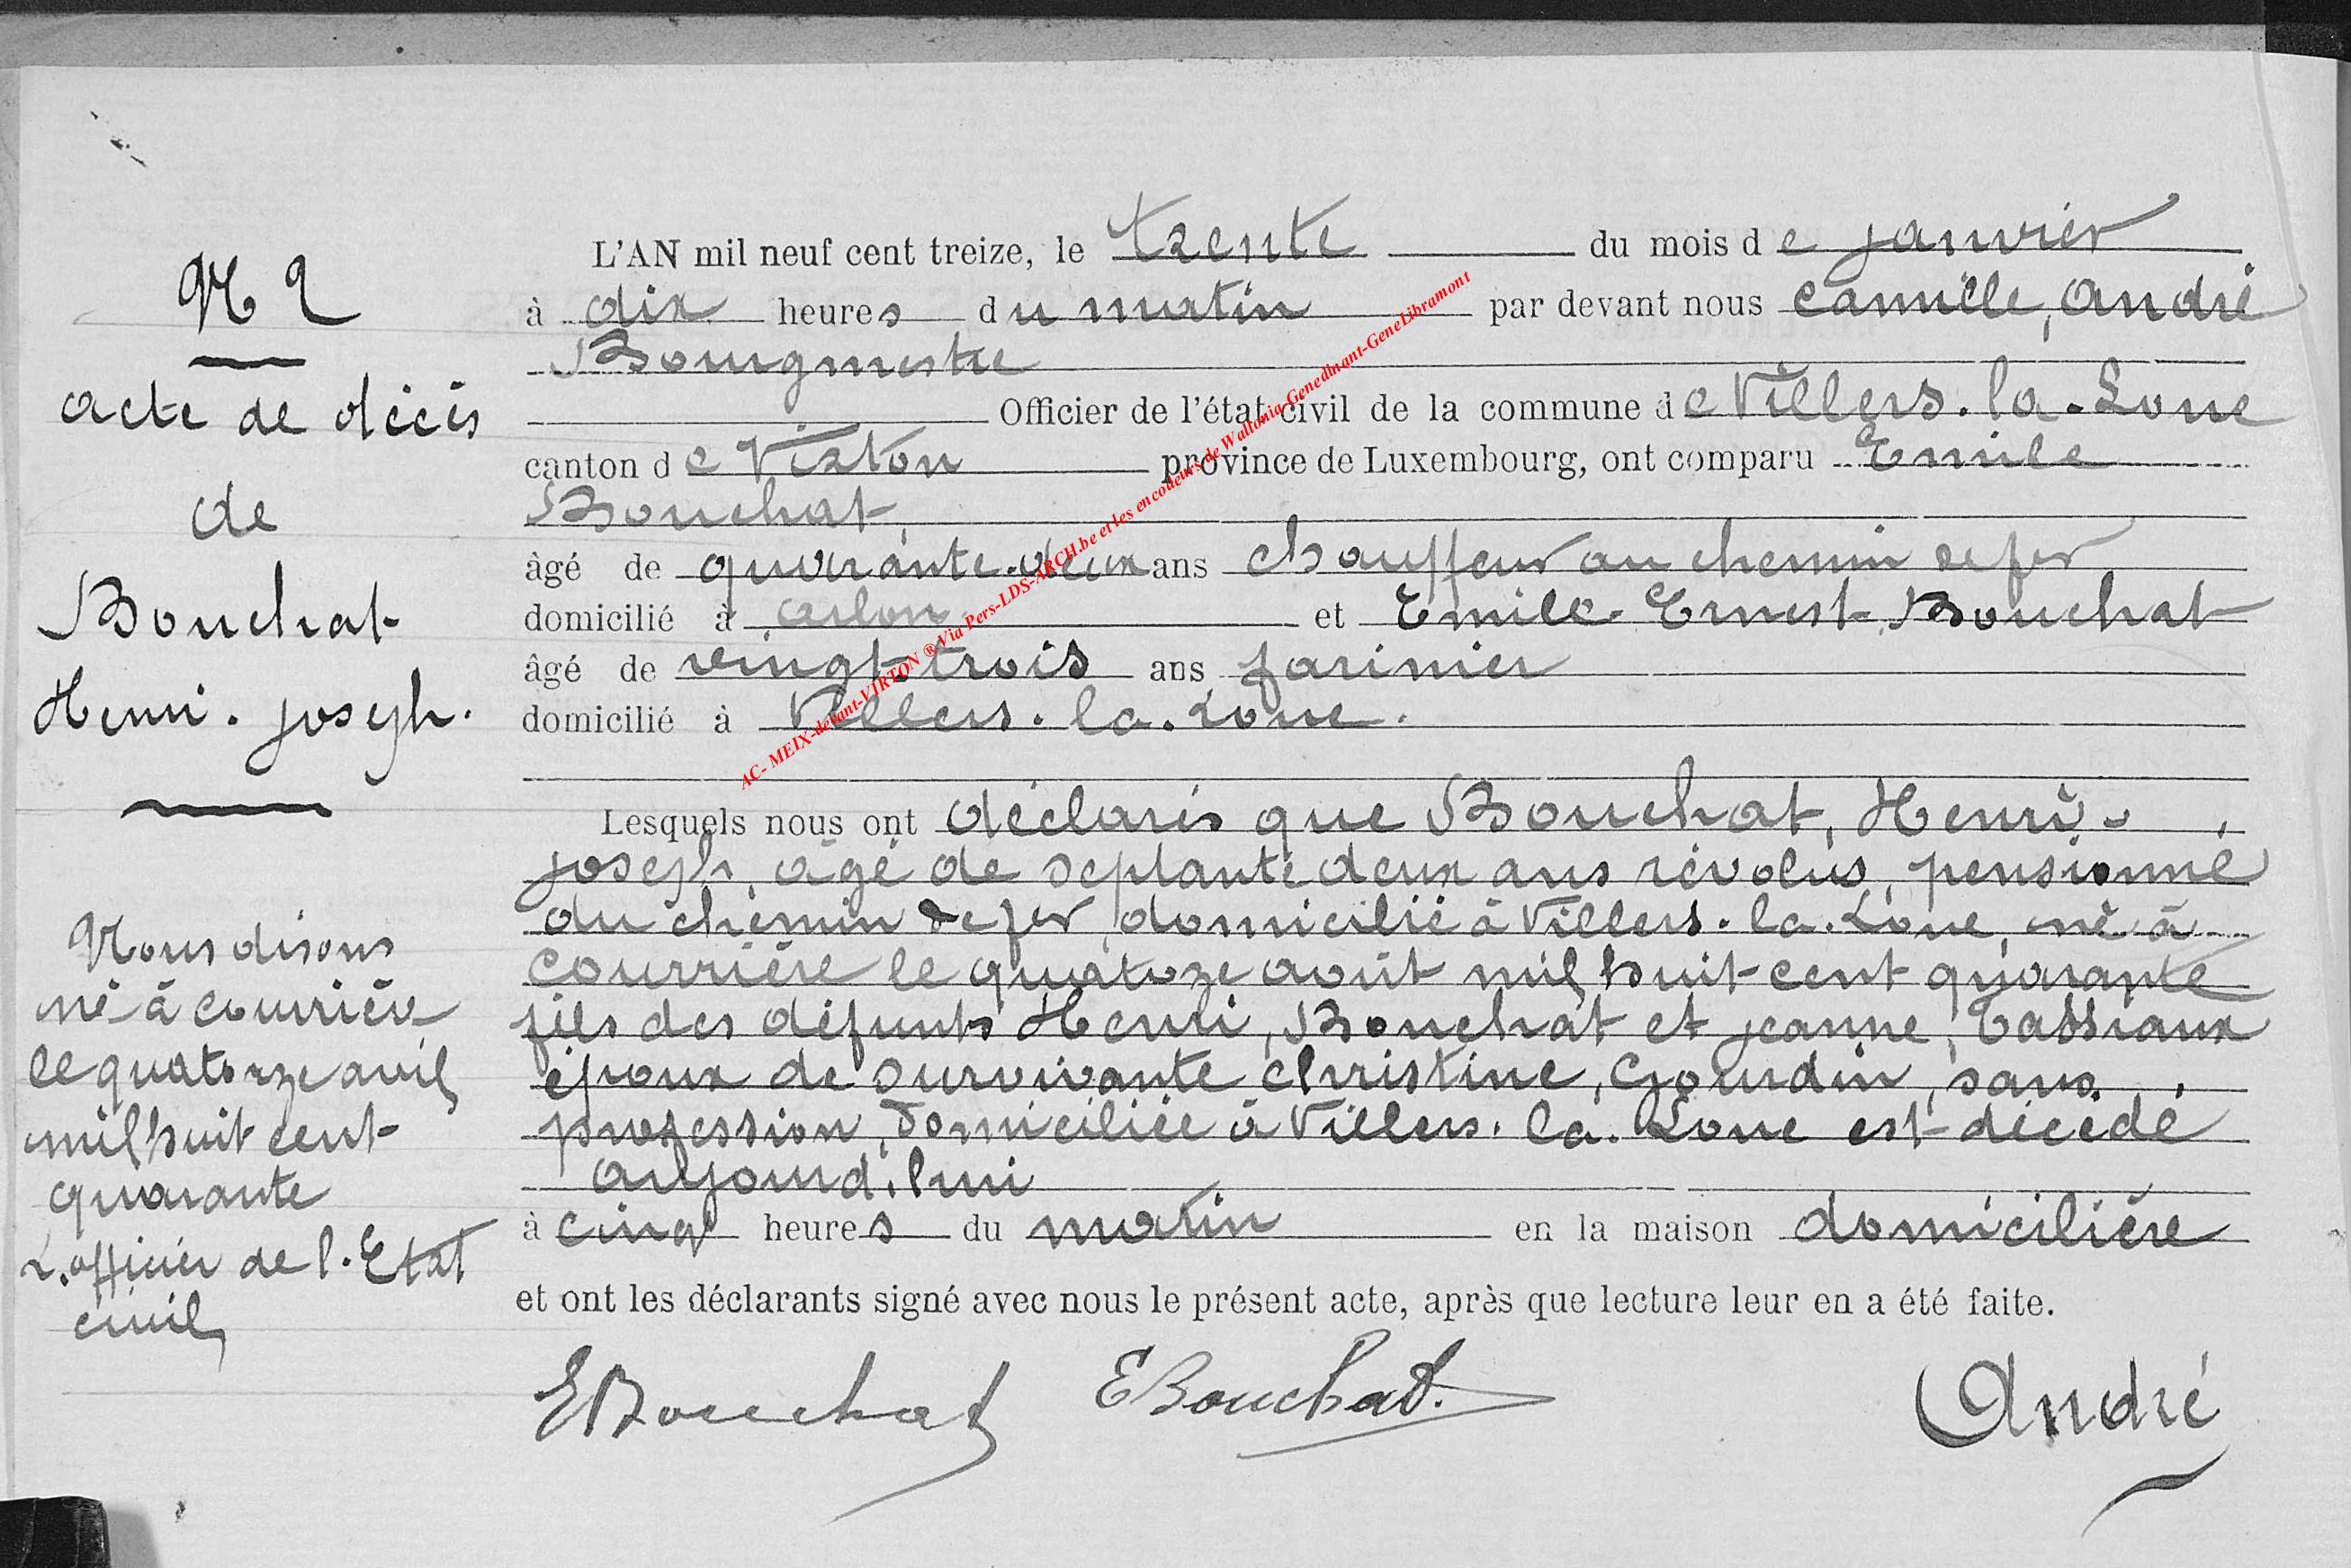 N 2
acte de décès
de
Bouchat
Henri. joseph.
Nous disons
né à courrière
le quatorze avril
mil huit cent
quarante
L.officier de l.Etat
civil
L'AN mil neuf cent treize, le trente du mois de janvier
à dix heures du matin par devant nous Camille, André
Bourgmestre
Officier de l'état civil de la commune de Villers.la.Loue
canton de Virton province de Luxembourg, ont comparu Emile
Bouchat
âgé de quarante.deux ans chauffeur au chemin de fer
domicilié à arlon et Emile Ernest Bouchat
âgé de vingt-trois ans farinier
domicilié à Villers.la.Loue.
Lesquels nous ont déclarés que Bouchat, Henri-
joseph, âgé de septante deux ans révolus, pensionné
du chemin de fer, domicilié à Villers.la.Loue, né à
courrière le quatoze août mil huit cent quarante
fils des défunts Henri, Bouchat et jeanne, Tassiaux
époux de survivante christine, Gourdin, sans
profession, domiciliée à Villers.la.Loue est décédé
aujourd.hui
à cinq heures du matin en la maison domicilière
et ont les déclarants signé avec nous le présent acte, après que lecture leur en a été faite.
EBouchat EBouchat. André
AC- MEIX-devant-VIRTON ® Via Pers-LDS-ARCH.be et les encodeurs de Wallonia-Genedinant-GeneLibramont